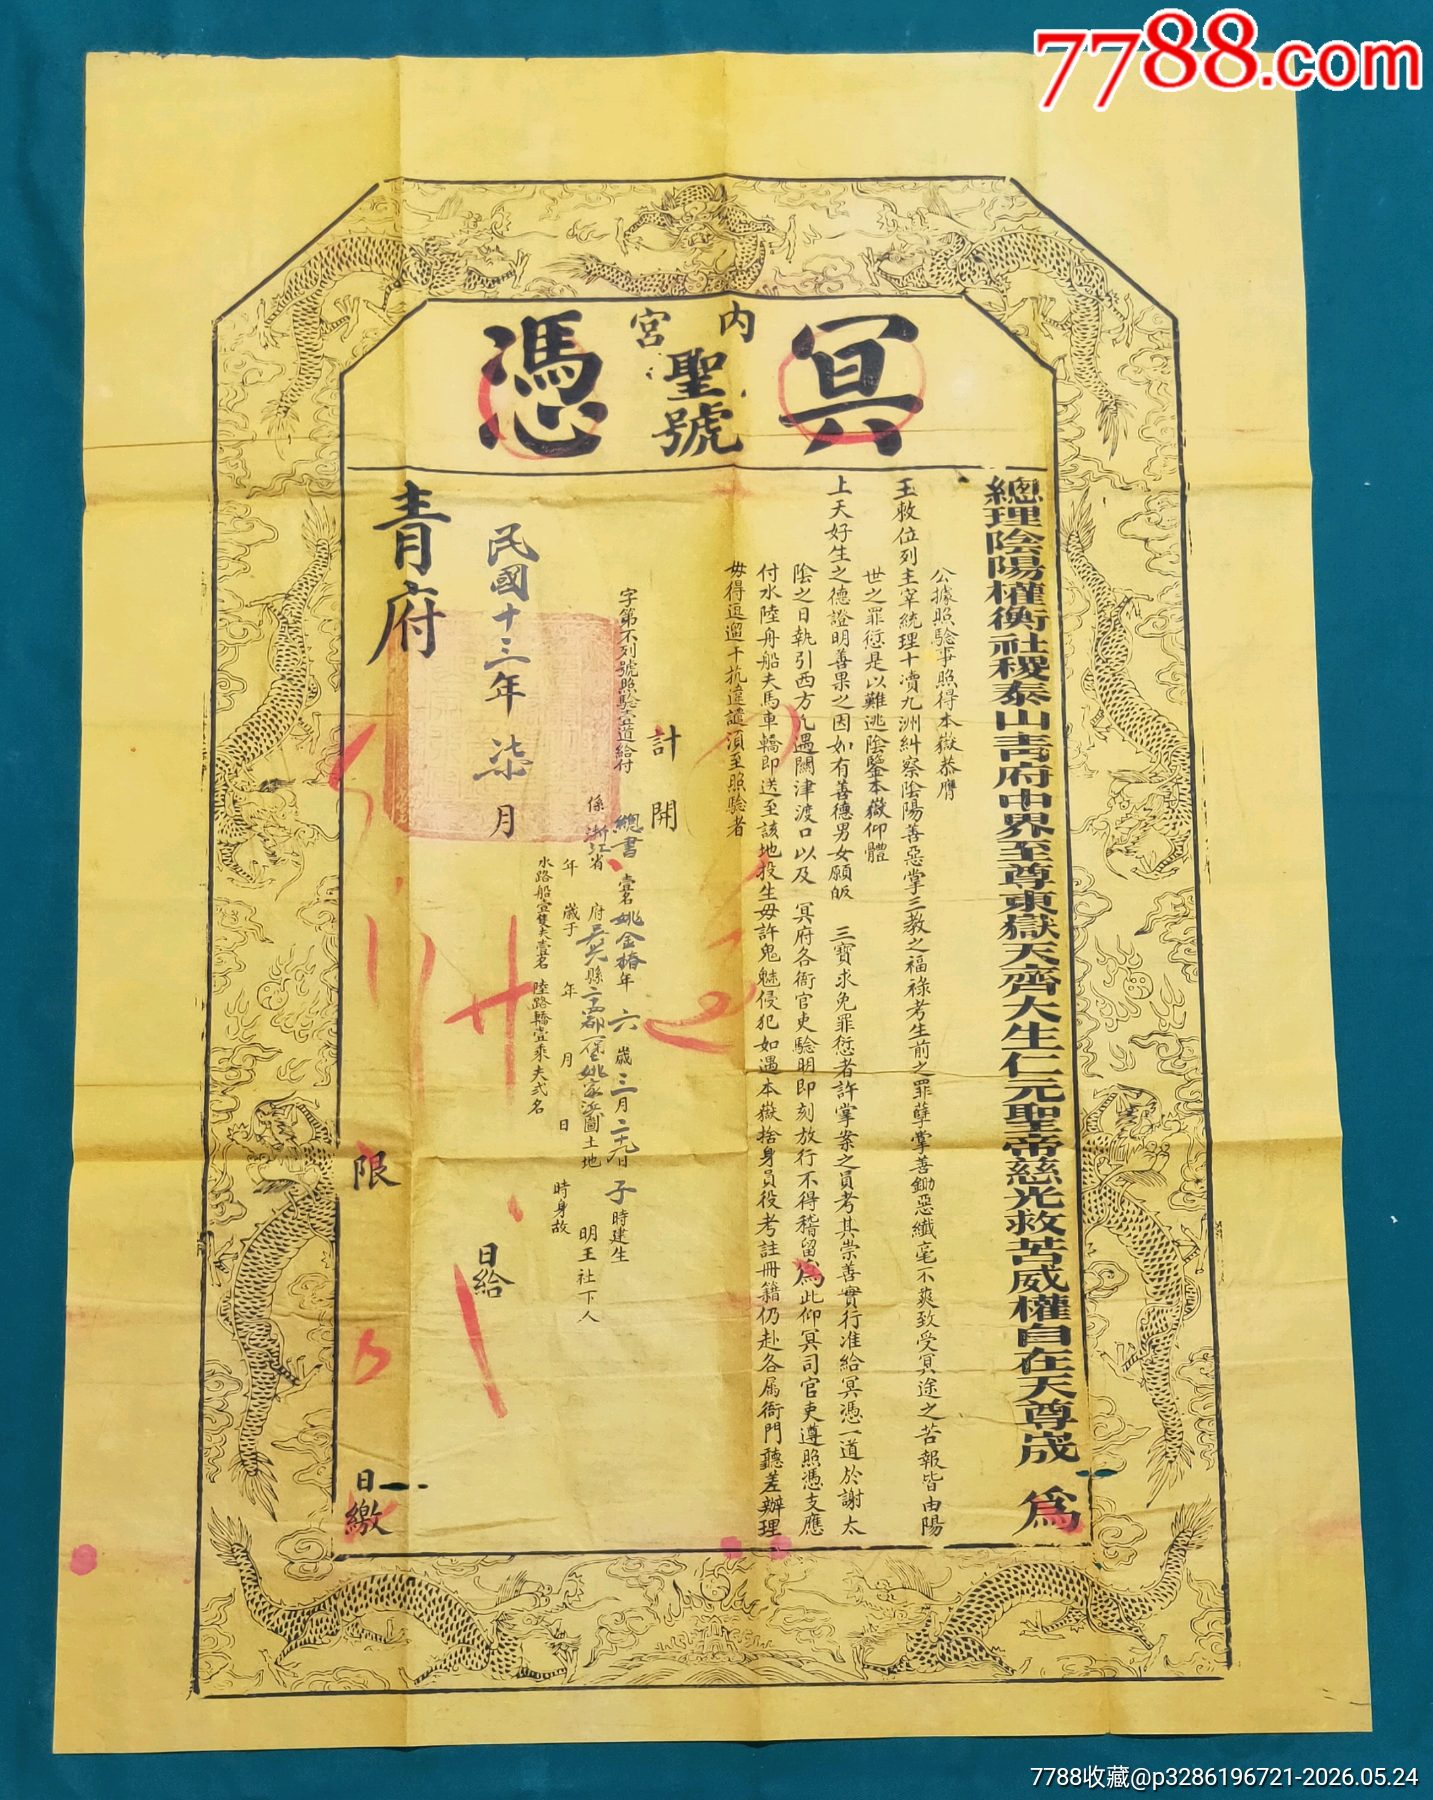 7788.com
冥
內宮
聖號
憑
總理陰陽權衡社稷泰山青府中界至尊東嶽天齊大生仁元聖帝慈光救苦威權自在天尊宬　為
公據照驗事照得本嶽恭膺
玉敕位列主宰統理十瀆九洲糾察陰陽善惡掌三教之福祿考生前之罪孽掌善鋤惡纖毫不爽致受冥途之苦報皆由陽
世之罪愆是以難逃陰鑒本嶽仰體
上天好生之德證明善果之因如有善德男女願皈　三寶求免罪愆者許掌案之員考其崇善實行准給冥憑一道於謝太
陰之日執引西方凡遇關津渡口以及　冥府各衙官吏驗明即刻放行不得稽留為此仰冥司官吏遵照憑支應
付水陸舟船夫馬車轎即送至該地投生毋許鬼魅侵犯如遇本嶽捨身員役考註冊籍仍赴各屬衙門聽差辦理
毋得逗遛干抗違譴須至照驗者
計開
字第不列號照驗壹道給付　總書　壹名姚金椿年　六　歲三月二十九日　子時建生
係浙江省　府吳興縣　都　姚家浜圖土地　明王社下人
年　歲于　年　月　日　時身故
水路船壹隻夫壹名　陸路轎壹乘夫弍名
民國十三年　柒　月　廿　日給
青府
限　日繳
7788收藏@p3286196721-2026.05.24